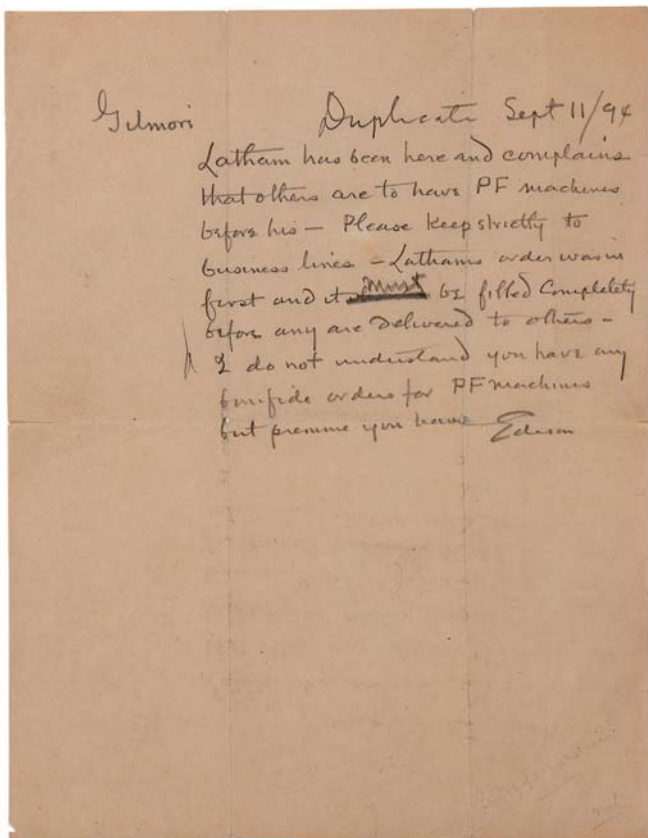 Gilmore Duplicate Sept 11/94
Latham has been here and complains
that others are to have PF machines
before his — Please Keep strictly to
business lines — Lathams order was in
first and it must be filled Completely
before any are Delivered to others —
I do not understand you have any
bonifide orders for PF machines
but presume you have Edison